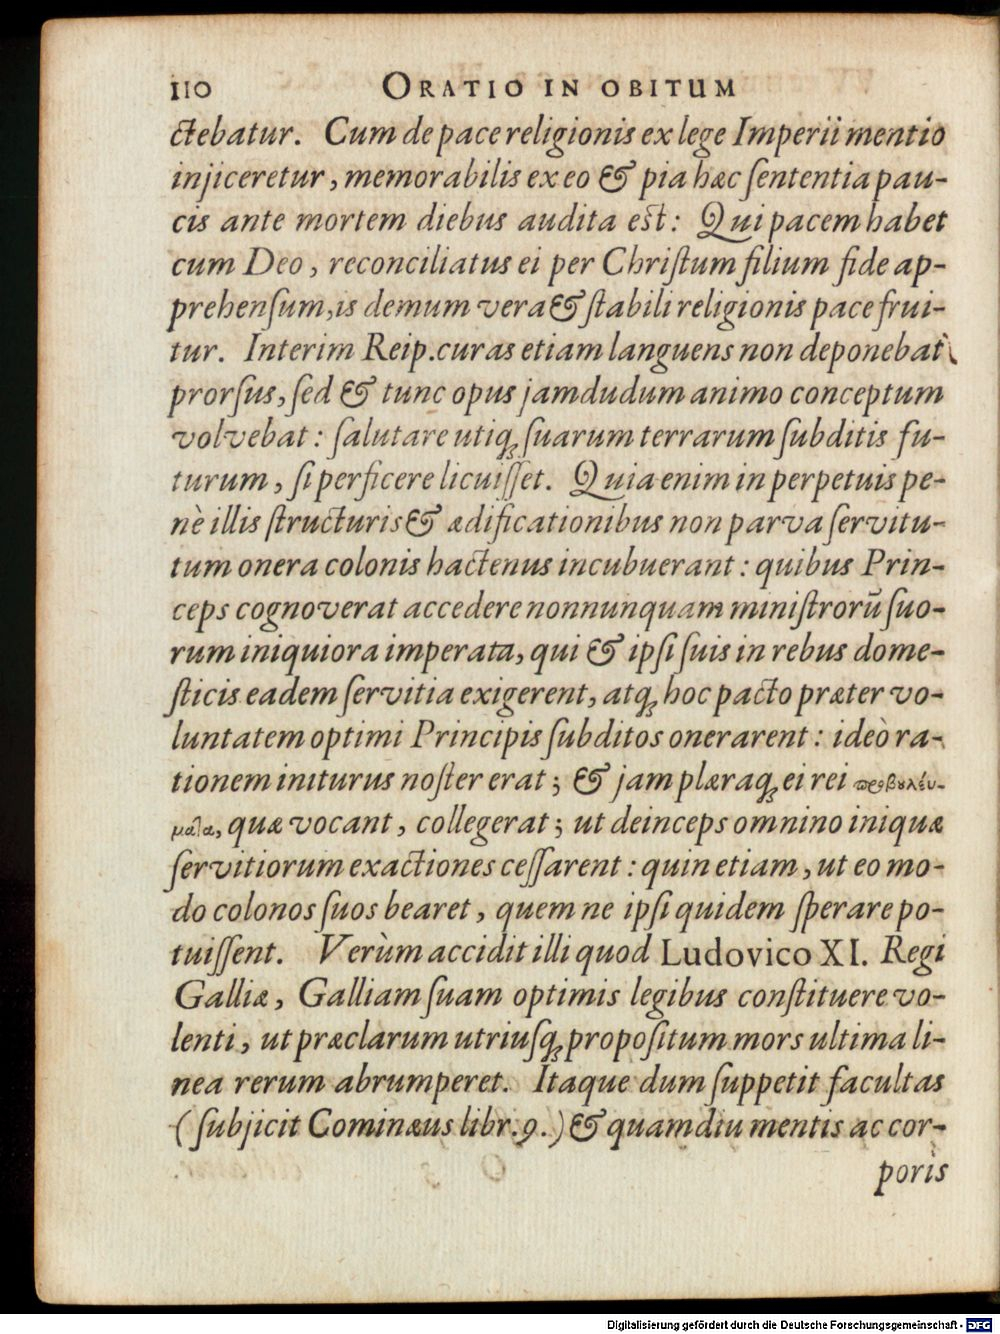 110 ORATIO IN OBITUM
ctebatur. Cum de pace religionis ex lege Imperii mentio
injiceretur, memorabilis ex eo & pia hæc ſententia pau-
cis ante mortem diebus audita eſt: Qui pacem habet
cum Deo, reconciliatus ei per Chriſtum filium fide ap-
prehenſum, is demum vera & ſtabili religionis pace frui-
tur. Interim Reip. curas etiam languens non deponebat
prorſus, ſed & tunc opus jamdudum animo conceptum
volvebat: ſalutare utiq; ſuarum terrarum ſubditis fu-
turum, ſi perficere licuiſſet. Quia enim in perpetuis pe-
nè illis ſtructuris & ædificationibus non parva ſervitu-
tum onera colonis hactenus incubuerant: quibus Prin-
ceps cognoverat accedere nonnunquam miniſtrorū ſuo-
rum iniquiora imperata, qui & ipſi ſuis in rebus dome-
ſticis eadem ſervitia exigerent, atq; hoc pacto præter vo-
luntatem optimi Principis ſubditos onerarent: ideò ra-
tionem initurus noſter erat; & jam plæraq; ei rei προβουλεύ-
ματα, quæ vocant, collegerat; ut deinceps omnino iniquæ
ſervitiorum exactiones ceſſarent: quin etiam, ut eo mo-
do colonos ſuos bearet, quem ne ipſi quidem ſperare po-
tuiſſent. Verùm accidit illi quod Ludovico XI. Regi
Galliæ, Galliam ſuam optimis legibus conſtituere vo-
lenti, ut præclarum utriuſq; propoſitum mors ultima li-
nea rerum abrumperet. Itaque dum ſuppetit facultas
(ſubjicit Cominæus libr. 9.) & quamdiu mentis ac cor-
poris
Digitalisierung gefördert durch die Deutsche Forschungsgemeinschaft - DFG